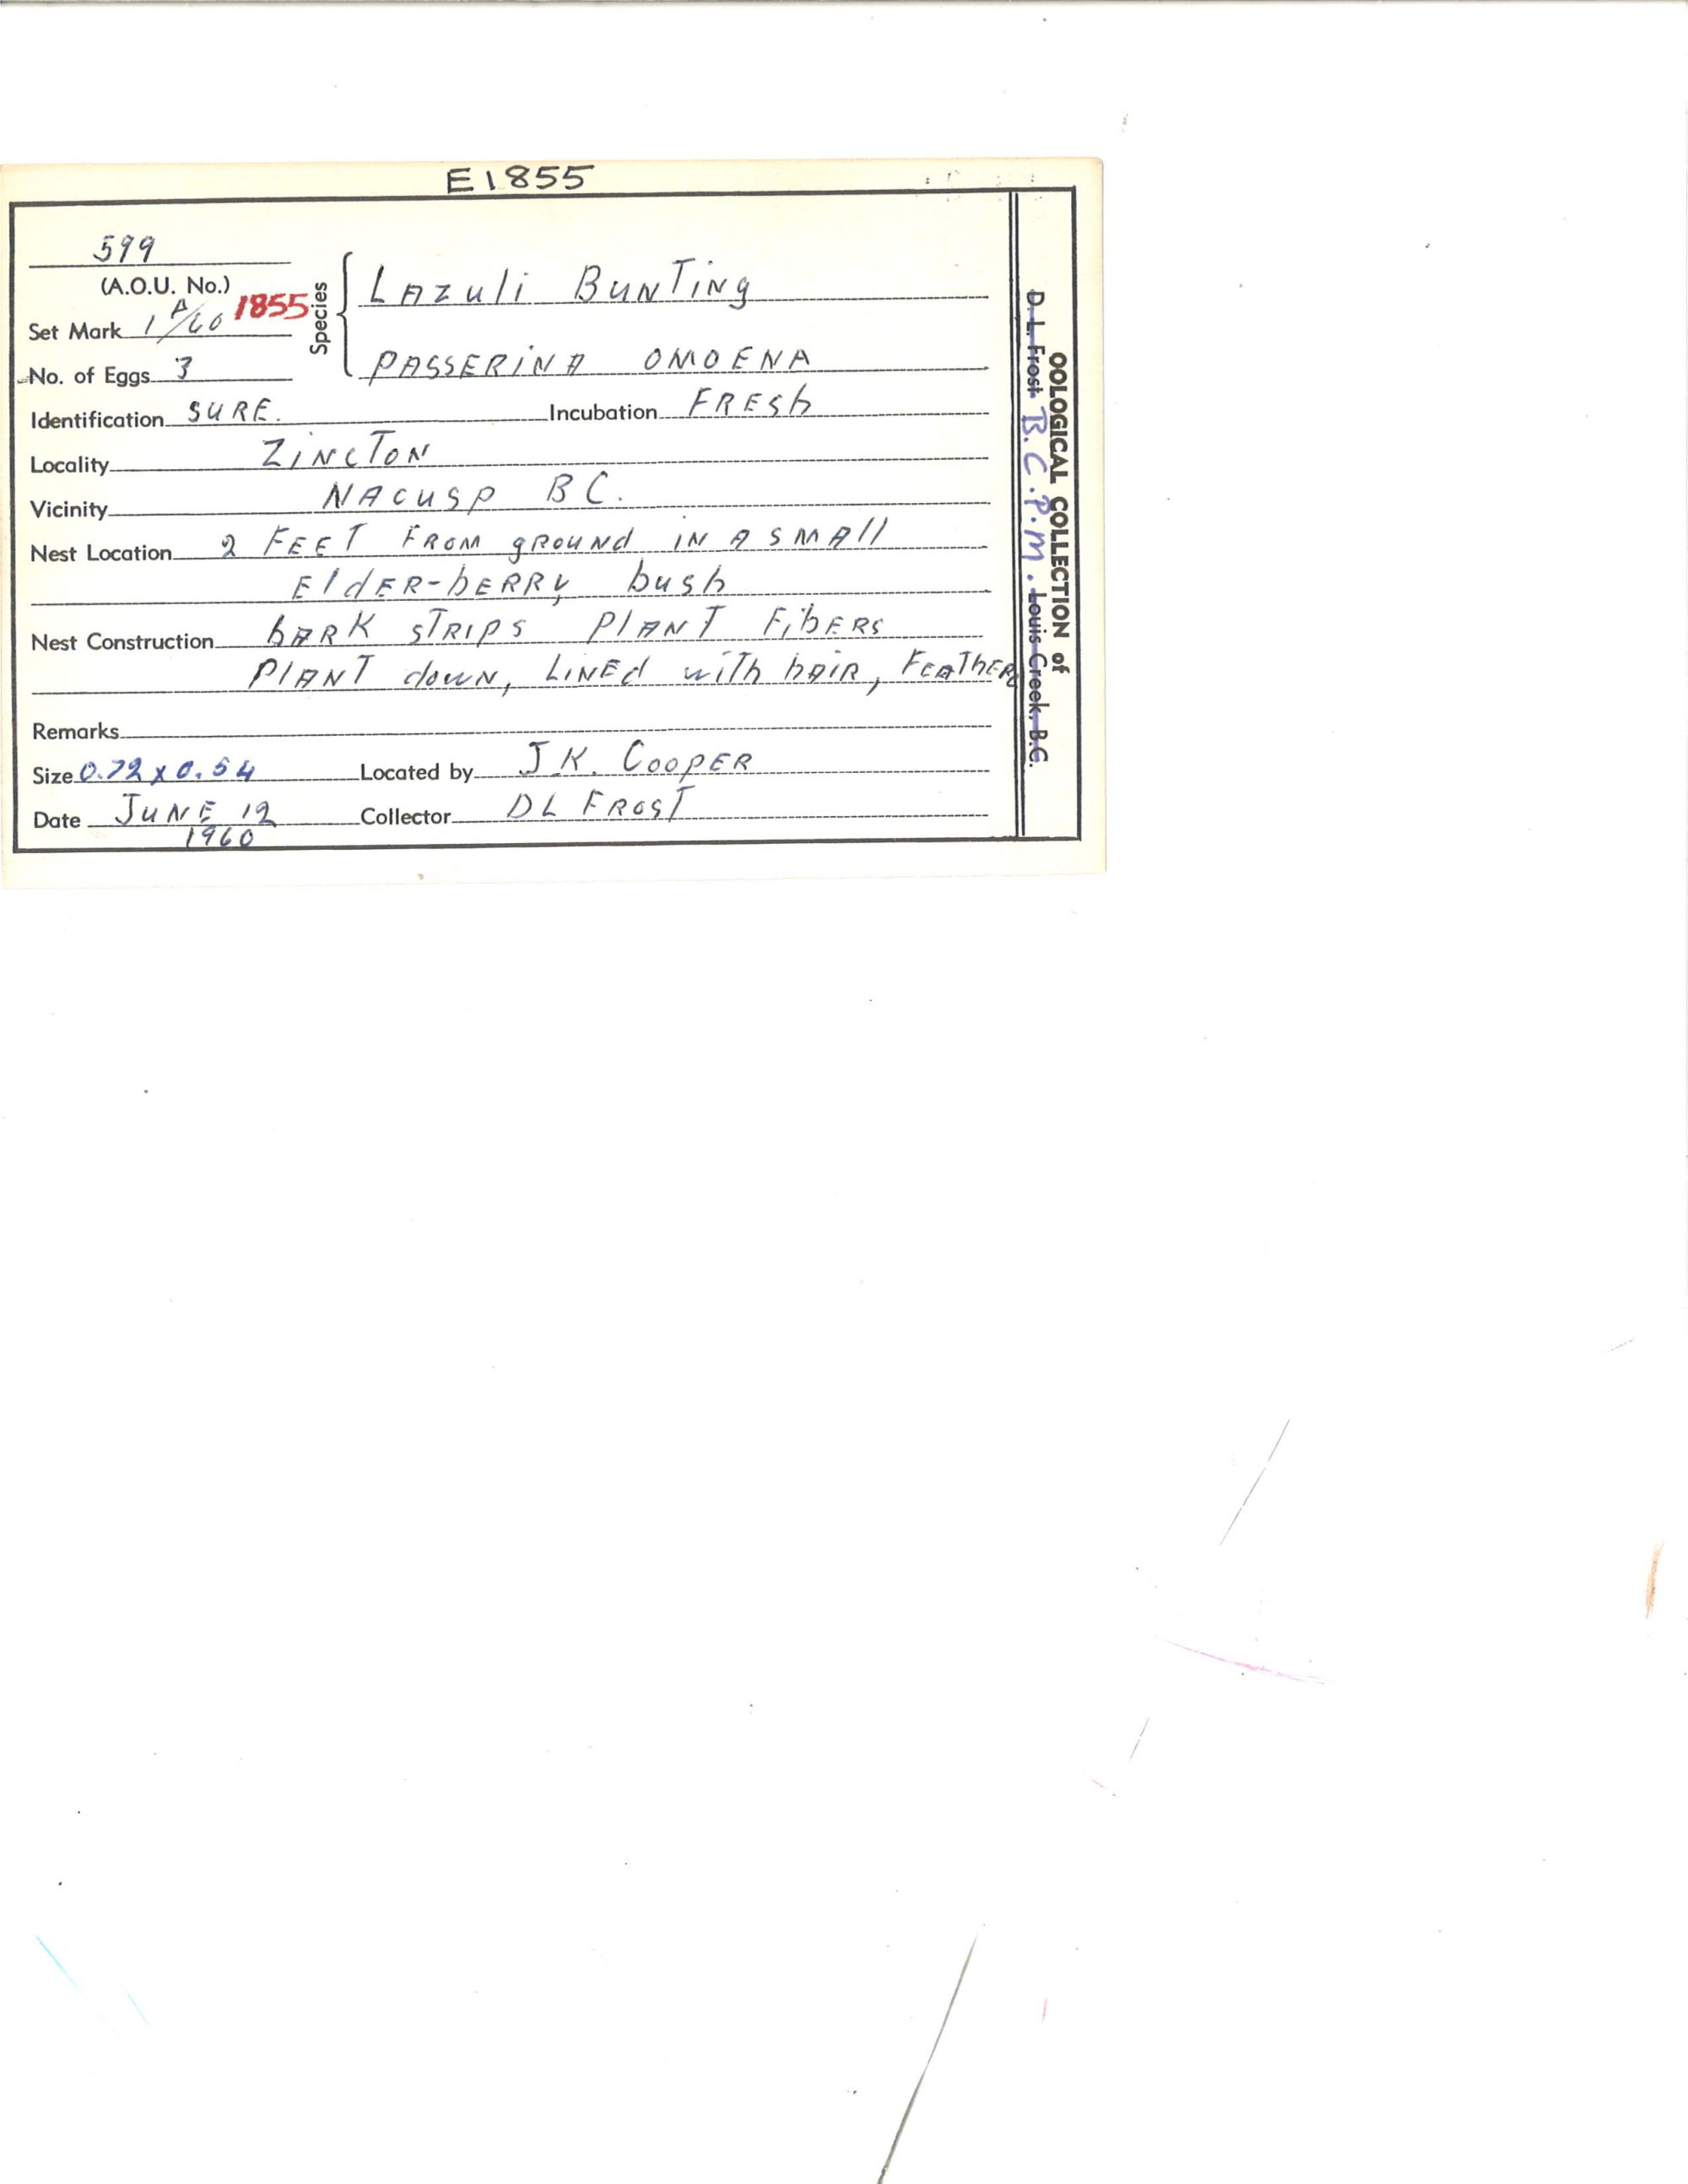 E1855
599
(A.O.U. No.)
Set Mark 1 A/60 1855
No. of Eggs 3
Species
Lazuli Bunting
PASSERINA OMOENA
Identification SURE. Incubation FRESh
Locality ZINCTON
Vicinity NACUSP BC.
Nest Location 2 FEET FROM gROUNd IN A SMAll
EldER-bERRy bush
Nest Construction bARK STRIPS PlANT FibERS
PlANT dowN, LINEd with hAIR, FEATHERS
Remarks
Size 0.72 x 0.54 Located by J.K. COOPER
Date JUNE 12 Collector DL FROST
1960
OOLOGICAL COLLECTION of
D. L. Frost B.C.P.M. Louis Creek, B.C.